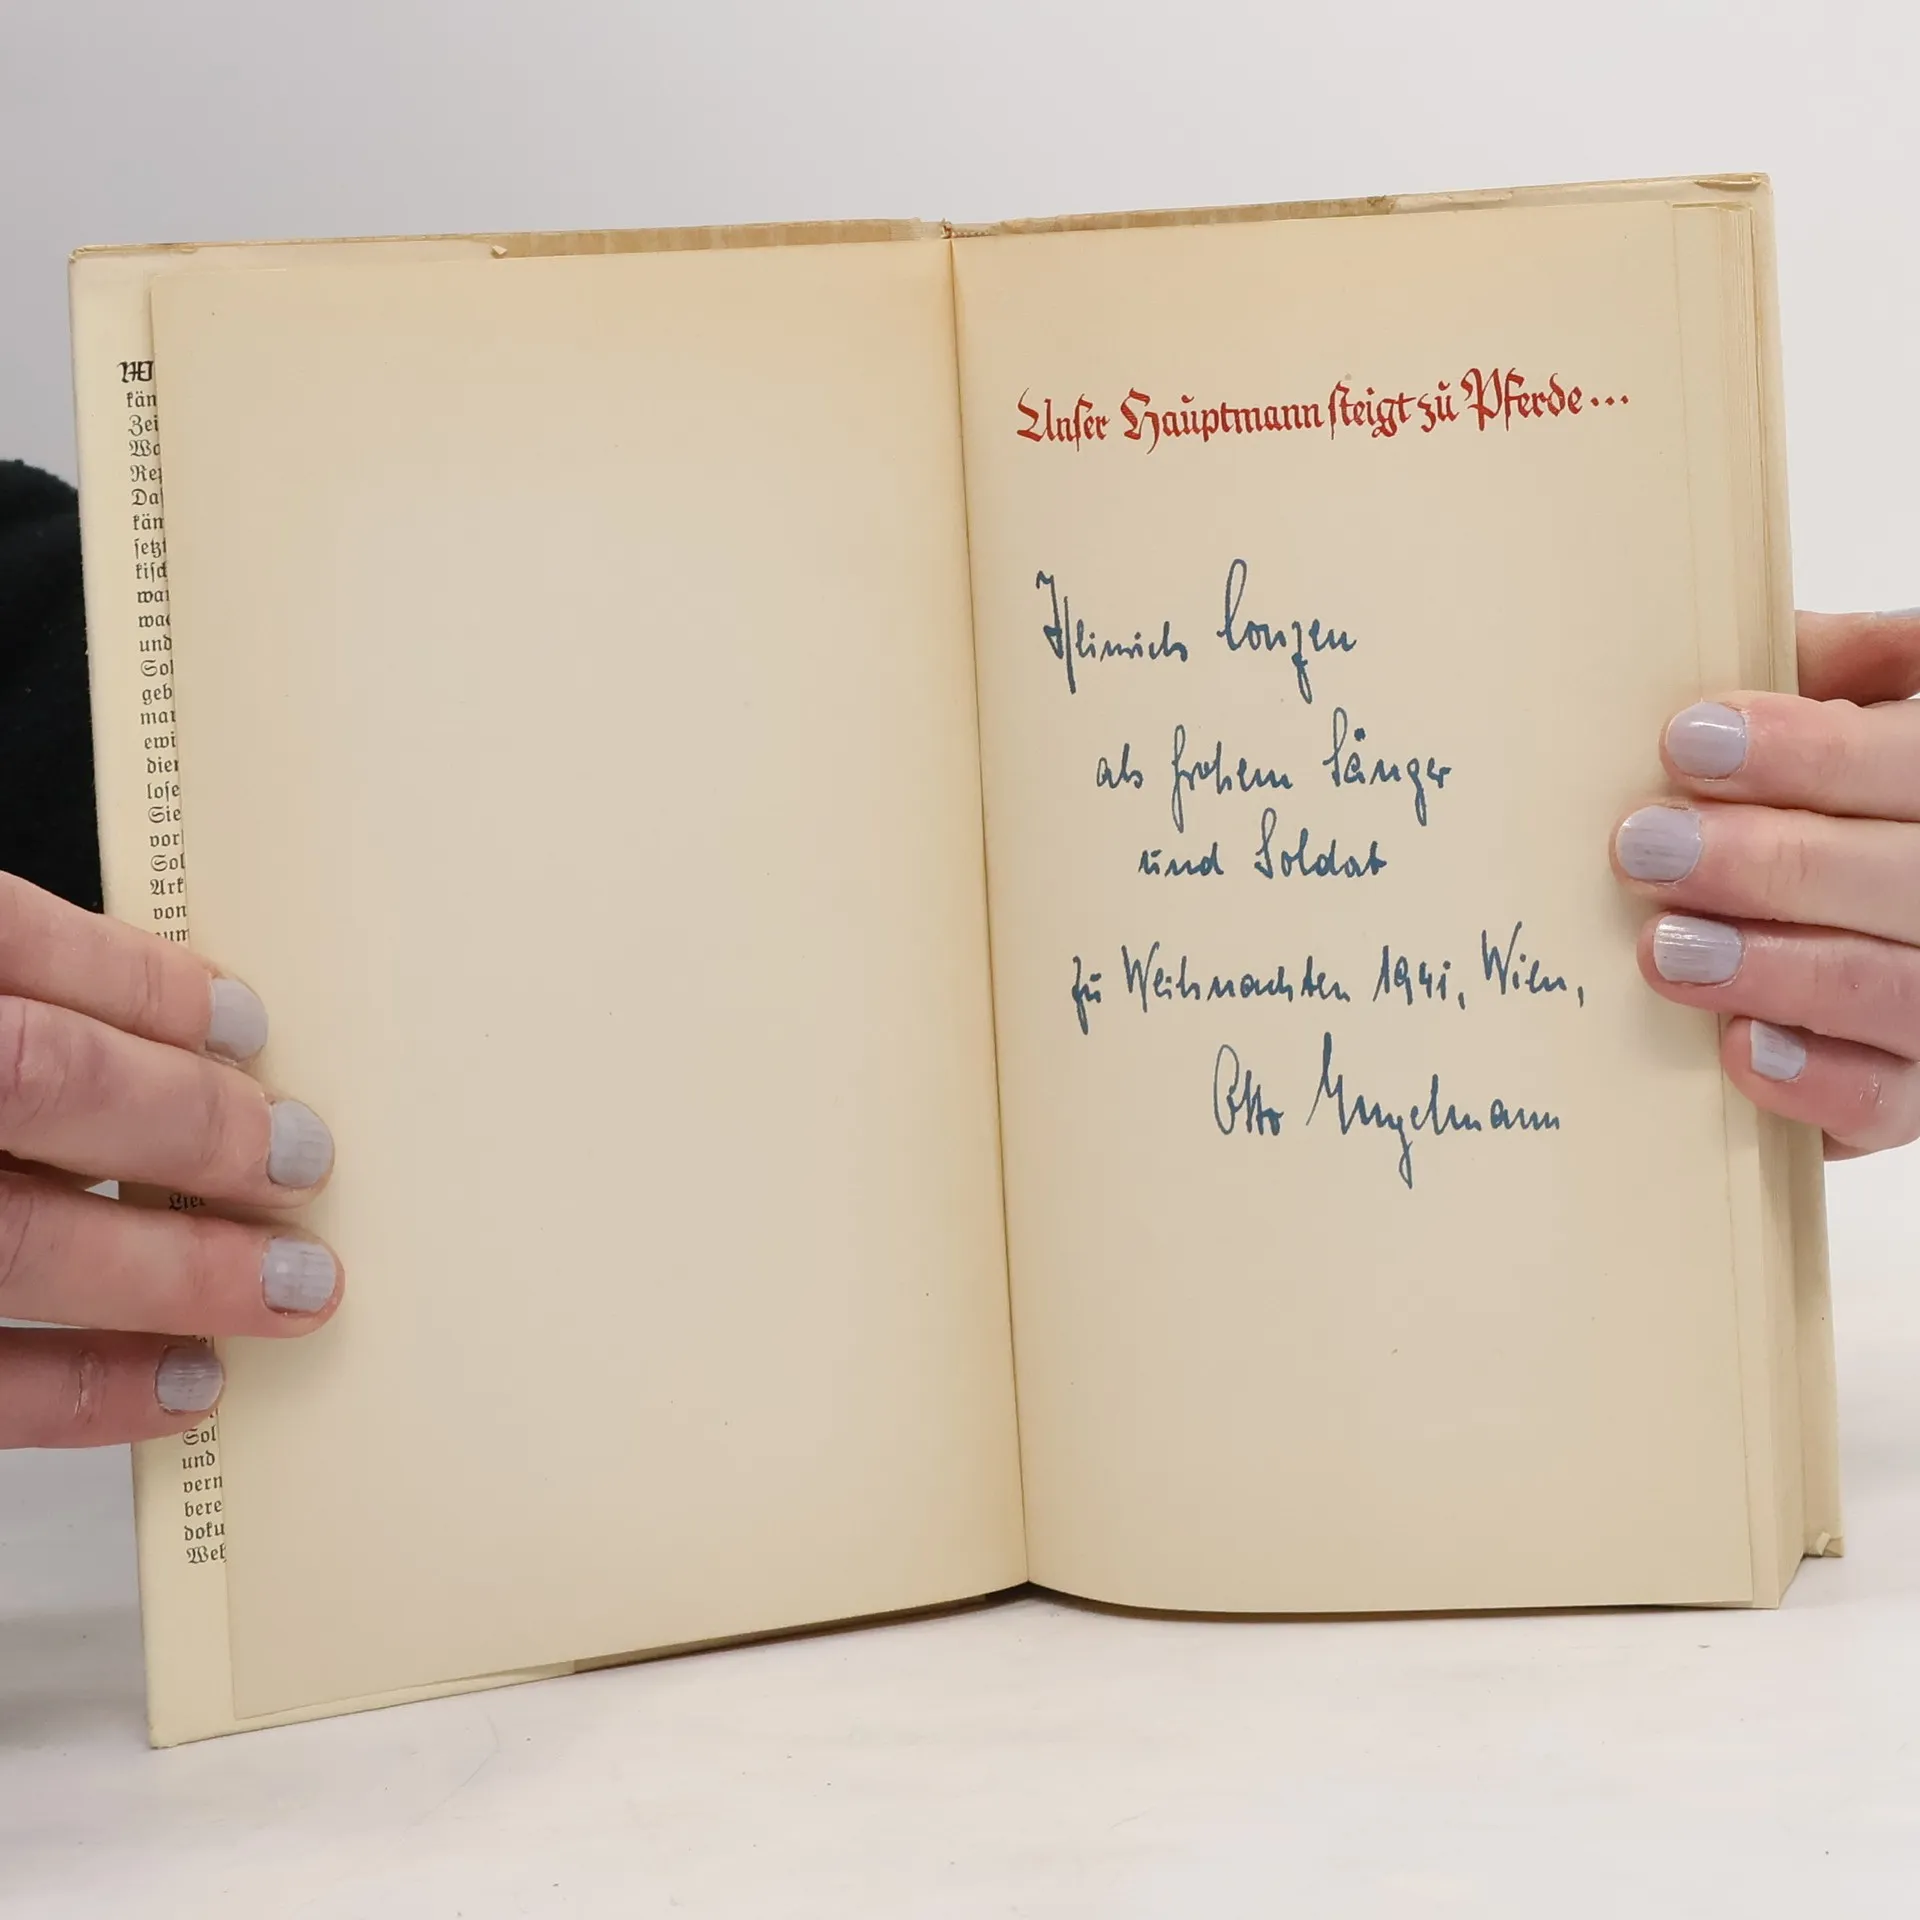 kän
Zei
Wa
Rep
Das
kän
setzt
kisch
war
wac
und
Sol
geb
mar
ewi
dier
lose
Sie
vor
Sol
Ark
von
Sol
und
vern
bere
doku
Weh
Unser Hauptmann steigt zu Pferde...
Heinrich Conzen
als frohem Sänger
und Soldat
zu Weihnachten 1941, Wien,
Otto Engelmann